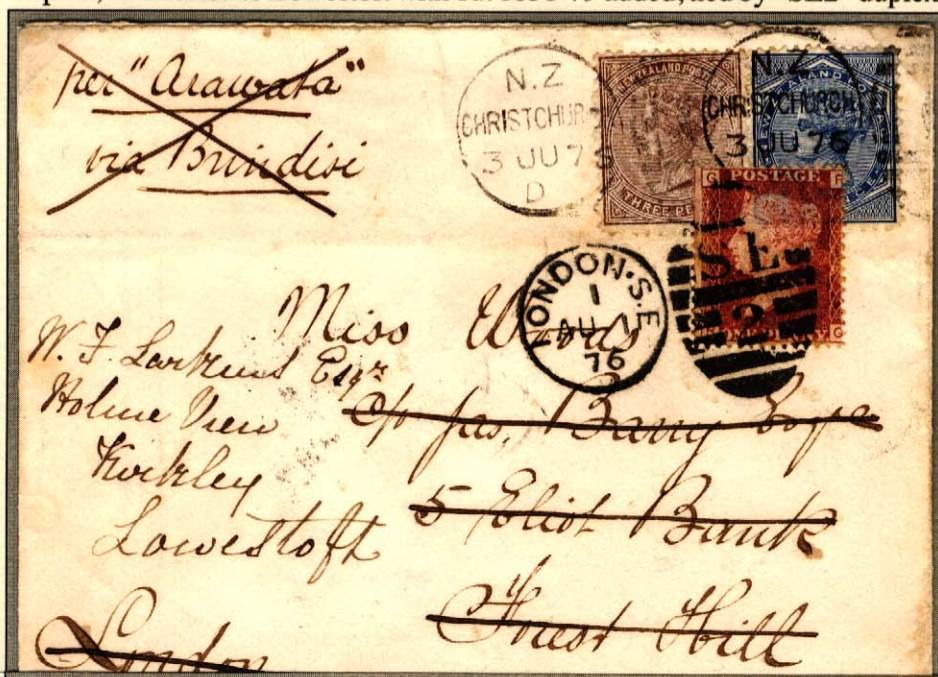 per "Arawata"
via Brindisi
N.Z
CHRISTCHUR
3 JU 7
D
NEW ZEALAND POSTAGE
THREE PE
N.Z
CHRISTCHURCH
3 JU 76
POSTAGE
G R
SE
2
LONDON·S.E
1
AU 1
76
Miss Woods
W. F. Larkins Esqr
Holme View
Kirkley
Lowestoft
c/o Jas, Barry Esqr
5 Eliot Bank
Forest Hill
London